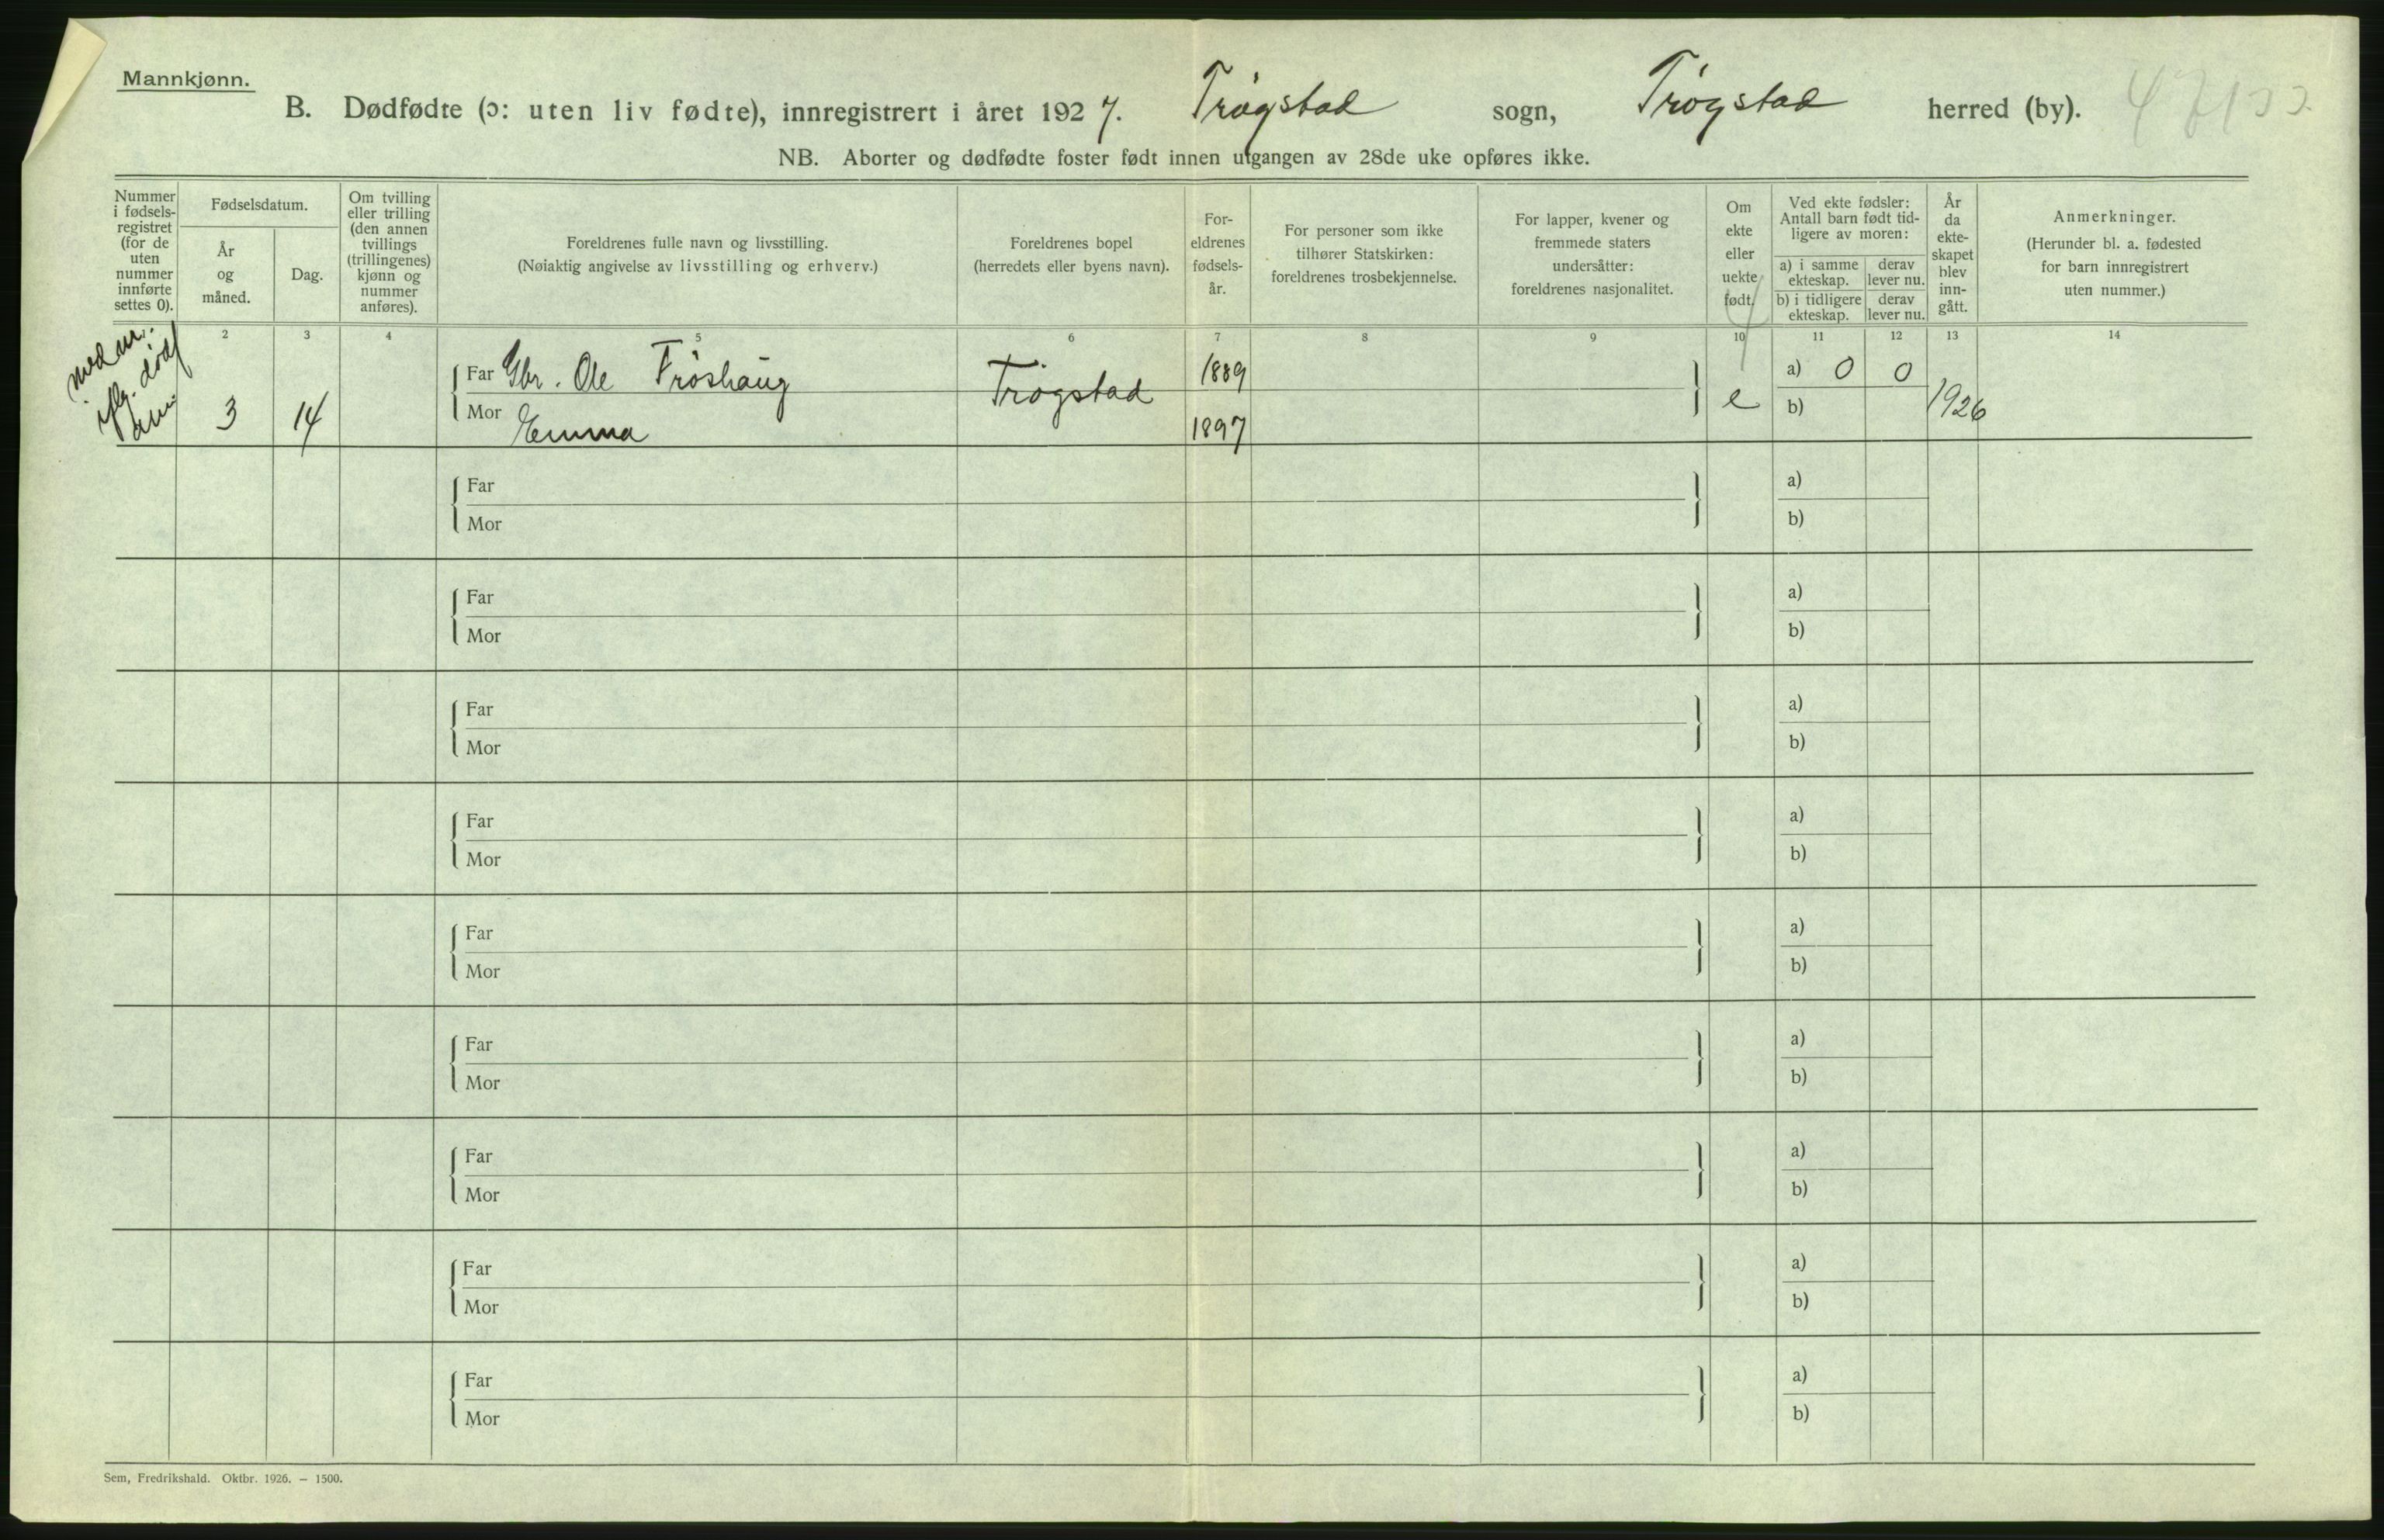 Mannkjønn.
B. Dødfødte (ɔ: uten liv fødte), innregistrert i året 1927. Trøgstad sogn, Trøgstad herred (by).
NB. Aborter og dødfødte foster født innen utgangen av 28de uke opføres ikke.
Nummer
i fødsels-
registret
(for de
uten
nummer
innførte
settes 0).
Fødselsdatum.
År
og
måned.
Dag.
Om tvilling
eller trilling
(den annen
tvillings
(trillingenes)
kjønn og
nummer
anføres).
Foreldrenes fulle navn og livsstilling.
(Nøiaktig angivelse av livsstilling og erhverv.)
Foreldrenes bopel
(herredets eller byens navn).
For-
eldrenes
fødsels-
år.
For personer som ikke
tilhører Statskirken:
foreldrenes trosbekjennelse.
For lapper, kvener og
fremmede staters
undersåtter:
foreldrenes nasjonalitet.
Om
ekte
eller
uekte
født.
Ved ekte fødsler:
Antall barn født tid-
ligere av moren:
a) i samme
ekteskap.
derav
lever nu.
b) i tidligere
ekteskap.
derav
lever nu.
År
da
ekte-
skapet
blev
inn-
gått.
Anmerkninger.
(Herunder bl. a. fødested
for barn innregistrert
uten nummer.)
2 3 4 5 6 7 8 9 10 11 12 13 14
Far Gbr. Ole Frøshaug 1889 a) 0 0
3 14 Trøgstad e 1926
Mor Emma 1897 b)
Far a)
Mor b)
Far a)
Mor b)
Far a)
Mor b)
Far a)
Mor b)
Far a)
Mor b)
Far a)
Mor b)
Far a)
Mor b)
Far a)
Mor b)
Far a)
Mor b)
Sem, Fredrikshald. Oktbr. 1926. — 1500.